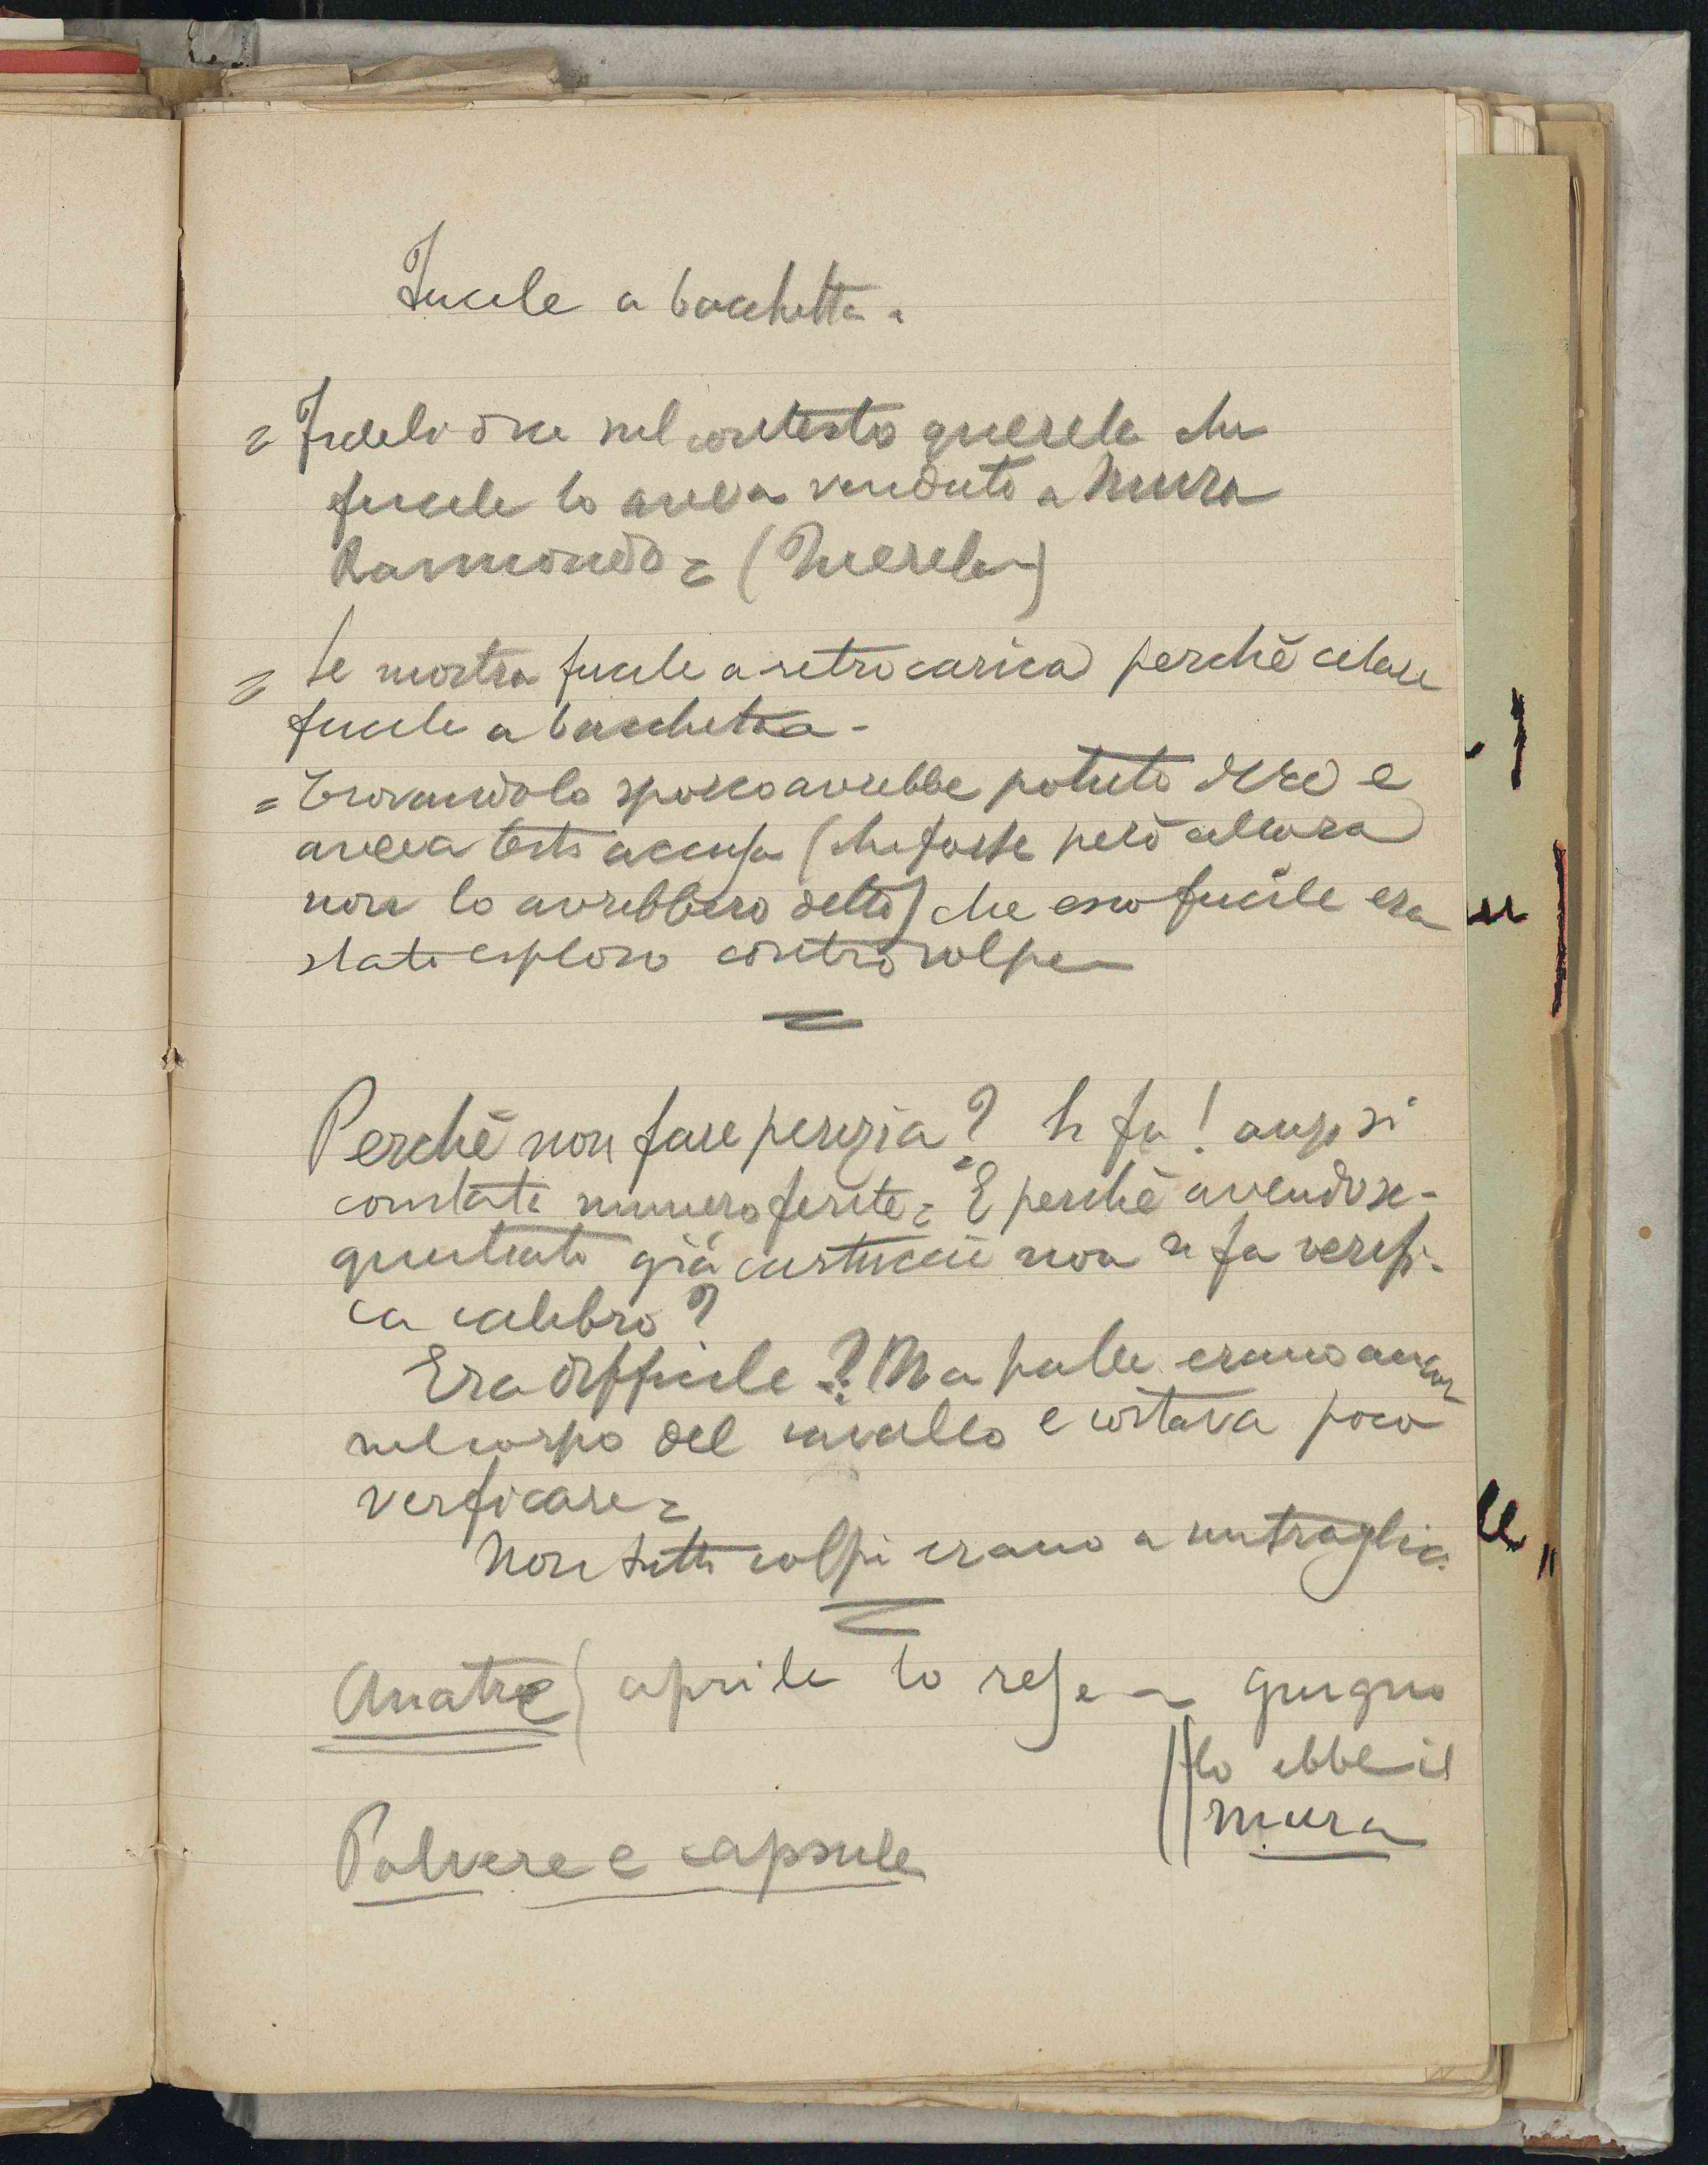 Fucile a bacchetta.
= Fideli dice nel contesto querela che
fucile lo aveva venduto a Mura
Raimondo = (Querela)
= Se mostra fucile a retrocarica perchè celare
fucile a bacchetta -
= Trovandolo sporco avrebbe potuto dire e
aveva testi accusa (che forse però allora
non lo avrebbero detto) che esso fucile era
stato esploso contro volpe
Perchè non fare perizia? Si fa! anzi si
constata numero ferite = E perchè avendo se-
questrato già cartuccie non si fa verifi-
ca calibro?
Era difficile? Ma palle erano ancor
nel corpo del cavallo e costava poco
verficare =
Non tutti colpi erano a mitraglia.
Anatre) aprile lo rese - giugno
lo ebbe il
Mura
Polvere e capsule